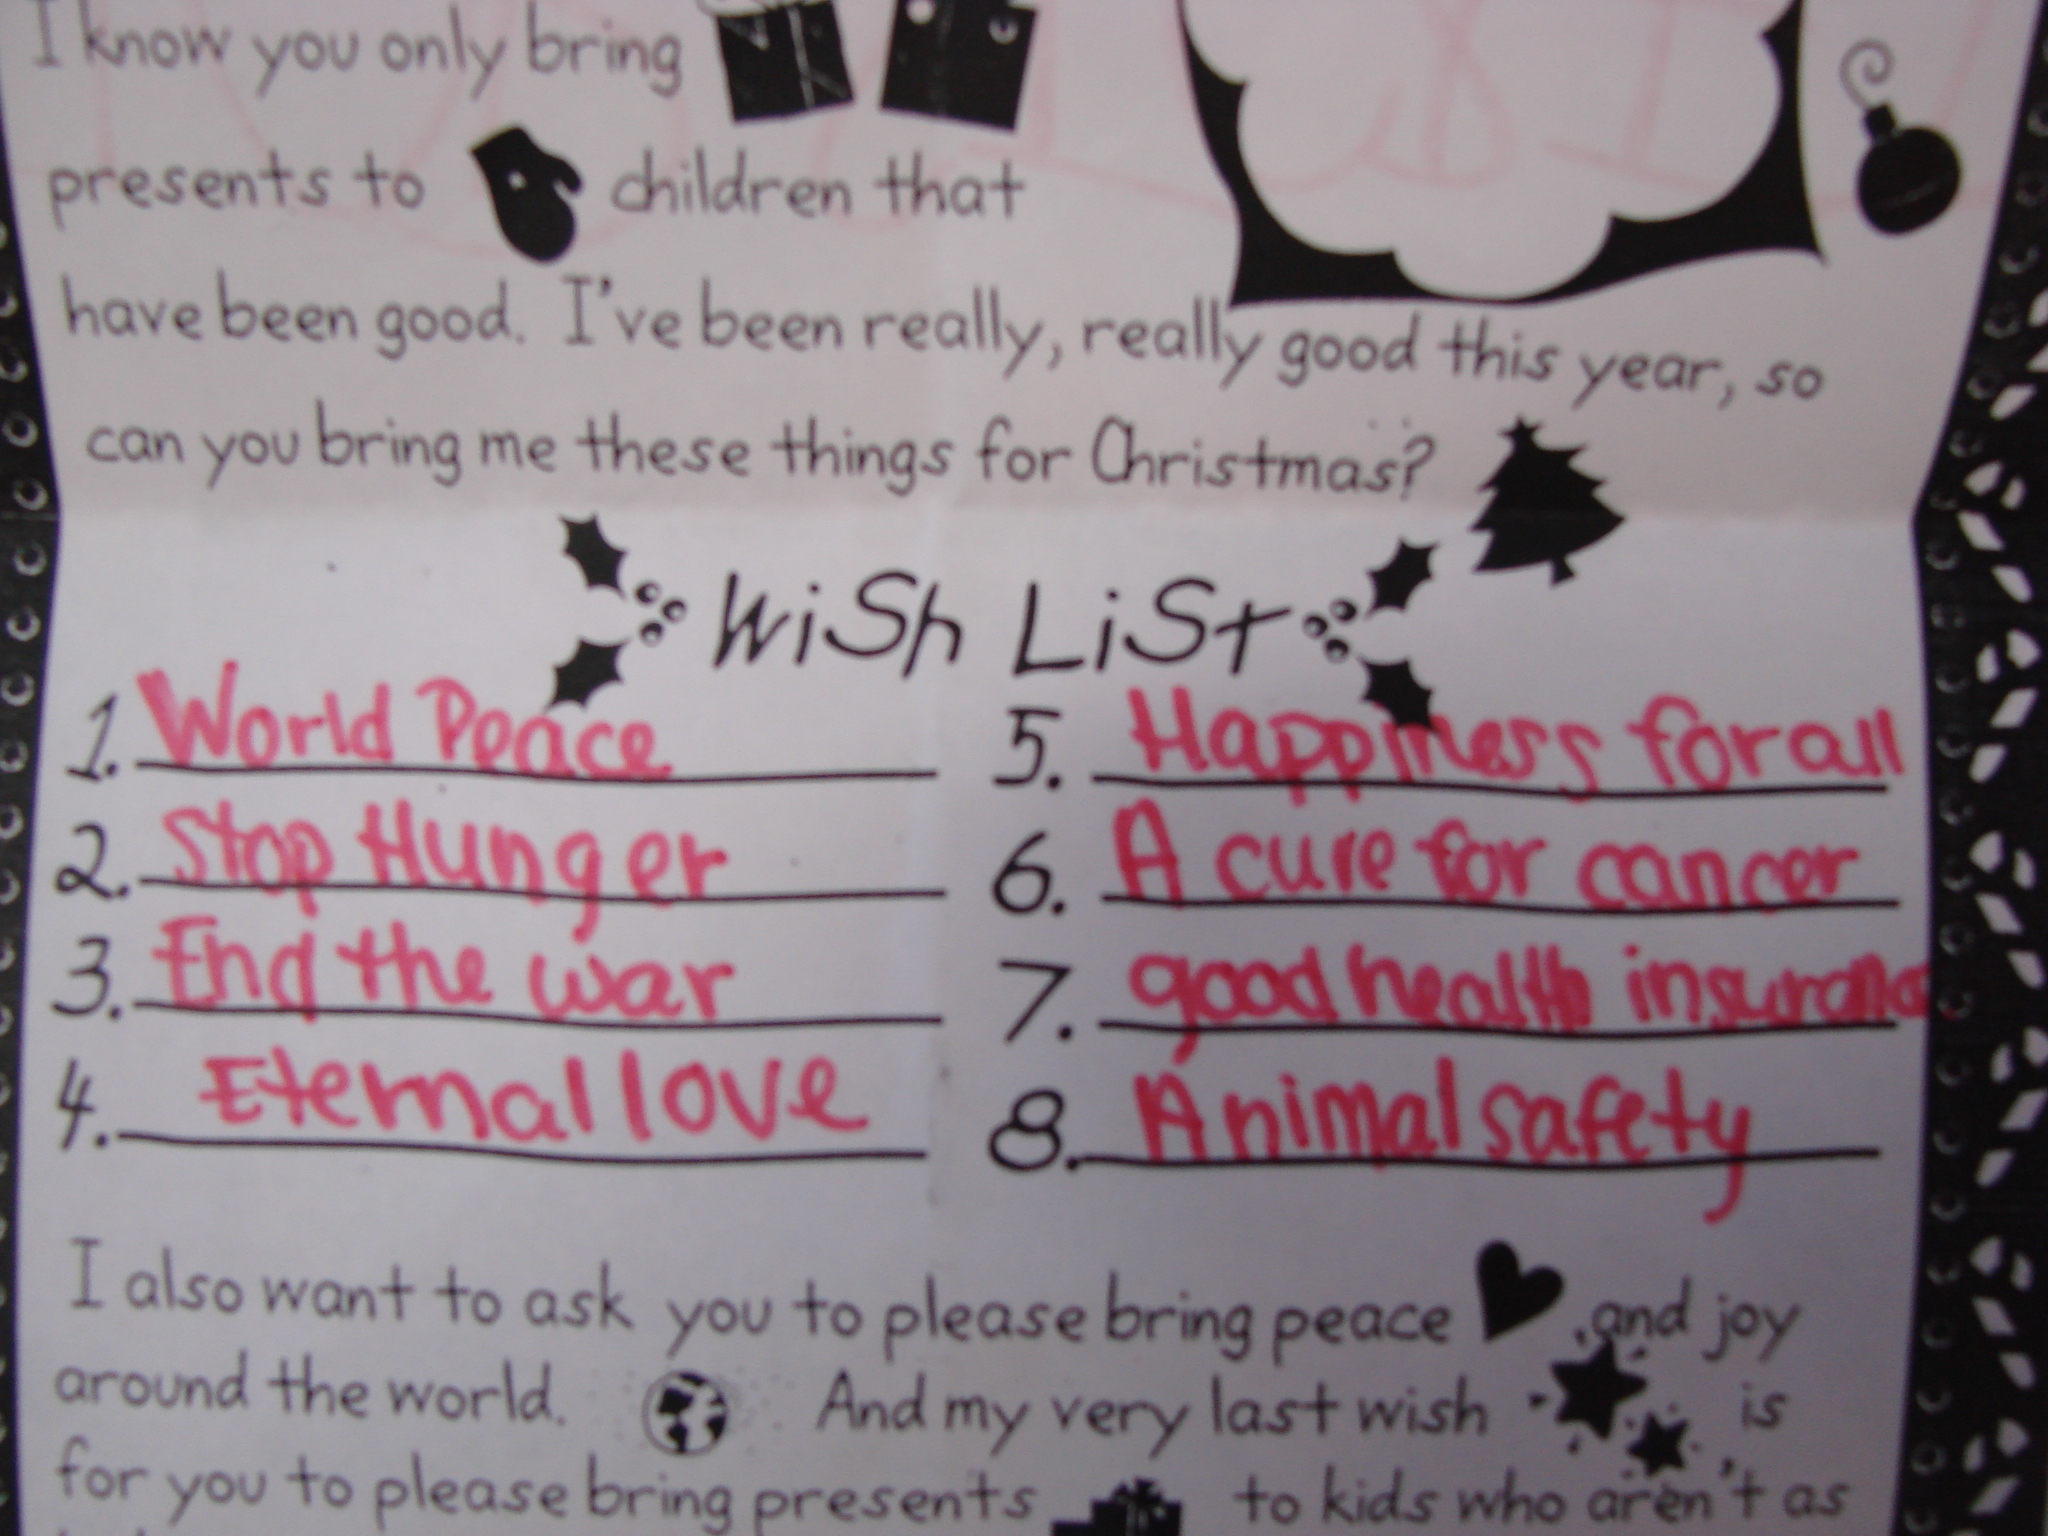 I know you only bring
presents to children that
have been good. I've been really, really good this year, so
can you bring me these things for Christmas?
WiSh LiSt
1. World Peace
2. Stop Hunger
3. End the war
4. Eternal love
5. Happiness for all
6. A cure for cancer
7. good health insurance
8. Animal safety
I also want to ask you to please bring peace and joy
around the world. And my very last wish is
for you to please bring presents to kids who aren't as